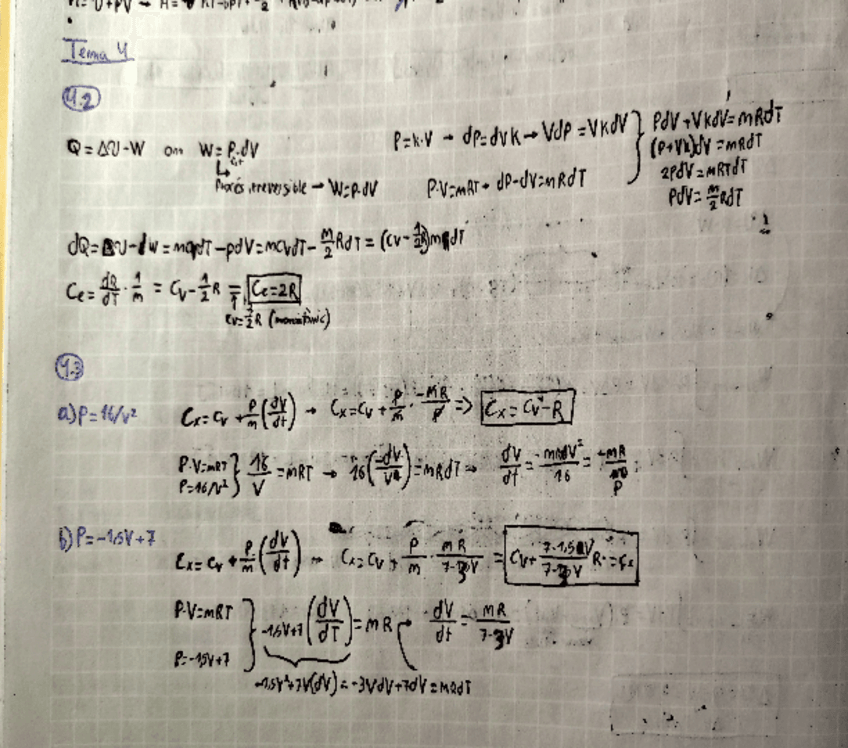 Tema 4
4.2
Q = ΔU - W on W = P·dV
Procés irreversible → W = P·dV
P = k·V → dP = dVk → VdP = VkdV
P·V = mRT → dP·dV = mRdT
PdV + VkdV = mRdT
(P+Vk)dV = mRdT
2PdV = mRTdT
PdV = m/2 RdT
dQ = ΔU - dW = mCvdT - pdV = mCvdT - m/2 RdT = (Cv - 1/2R)mRdT
Ce = dQ/dT · 1/m = Cv - 1/2 R = Ce = 2R
(monoatòmic)
4.3
a) P = 16/V²
Cx = Cv + P/m (dV/dt) → Cx = Cv + P/m · -MR/P => Cx = Cv - R
P·V = mRT
P = 16/V²
16/V = mRT → 16(-dV/V²) = mRdT →
b) P = -1,5V + 7
Cx = Cv + P/m (dV/dt) → Cx = Cv + P/m · MR/7-3V = Cv + 7-1,5V/7-3V R = Cx
P·V = mRT
P = -1,5V + 7
-1,5V+7 (dV/dT) = mR → dV/dt = MR/7-3V
-1,5V²+7V(dV) = -3VdV + 7dV = mRdT